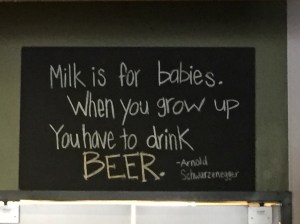 Milk is for babies.
When you grow up
You have to drink
BEER.
-Arnold
Schwarzenegger